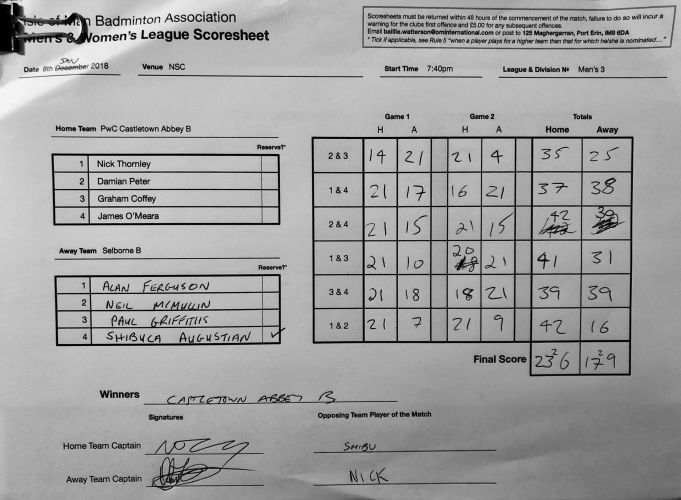 Isle of Man Badminton Association
Men's & Women's League Scoresheet
Scoresheets must be returned within 48 hours of the commencement of the match, failure to do so will incur a
warning for the clubs first offence and £5.00 for any subsequent offences.
Email baillie.watterson@ominternational.com or post to 125 Maghergarran, Port Erin, IM9 6DA
* Tick if applicable, see Rule 5 "when a player plays for a higher team then that for which he/she is nominated..."
JAN
Date 8th December 2018 Venue NSC Start Time 7:40pm League & Division No Men's 3
Game 1 Game 2 Totals
H A H A Home Away
Home Team PwC Castletown Abbey B
Reserve?*
1 Nick Thornley
2 Damian Peter
3 Graham Coffey
4 James O'Meara
Away Team Selborne B
Reserve?*
1 ALAN FERGUSON
2 NEIL MCMULLIN
3 PAUL GRIFFITHS
4 SHIBUCA AUGUSTIAN ✓
2 & 3 14 21 21 4 35 25
1 & 4 21 17 16 21 37 38
2 & 4 21 15 21 15 42
1 & 3 21 10 20 21 41 31
3 & 4 21 18 18 21 39 39
1 & 2 21 7 21 9 42 16
Final Score 236 179
2 2
Winners CASTLETOWN ABBEY B
Signatures Opposing Team Player of the Match
Home Team Captain SHIBU
Away Team Captain NICK